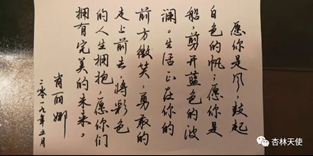 愿你是风，鼓起
白色的帆，愿你是
船，剪开蓝色的波
澜。生活正在你的
前方微笑，勇敢的
走上前去，将彩色
的人生拥抱，愿你们
拥有完美的未来。
肖丽娜
二零一八年五月
杏林天使